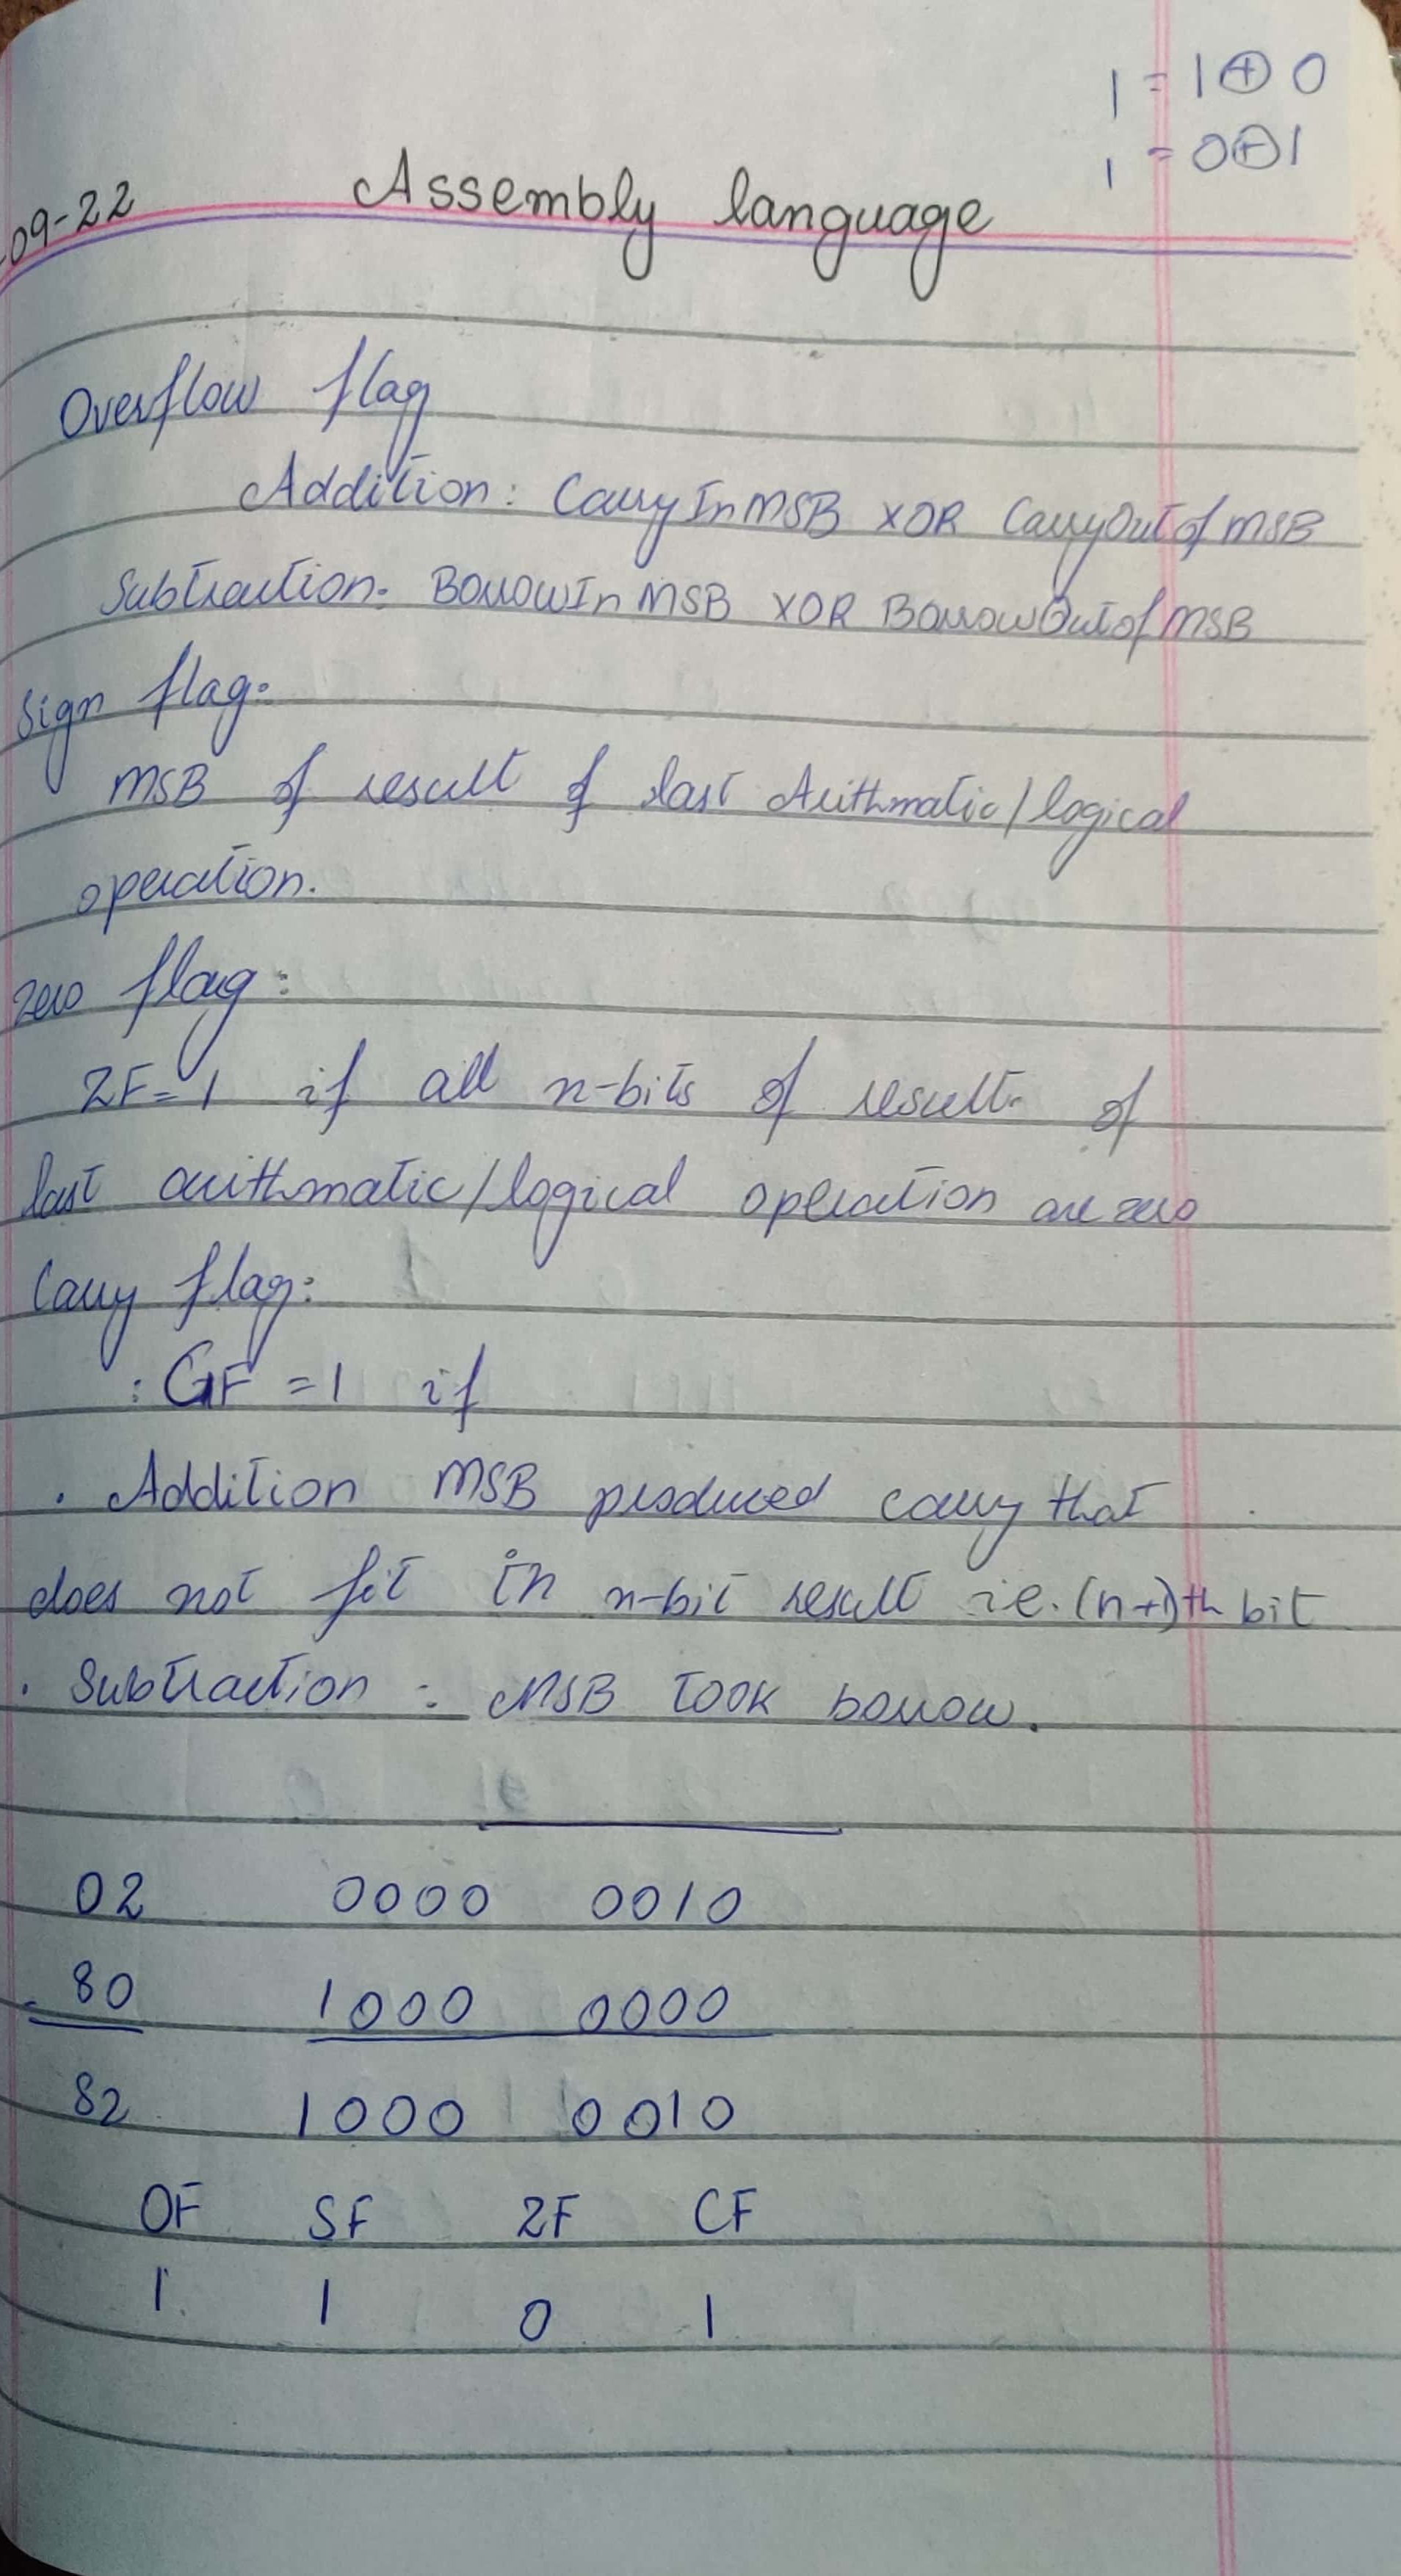 1 = 1 ⊕ 0
1 = 0 ⊕ 1
09-22 Assembly language
Overflow flag
Addition: CarryInMSB XOR CarryOutofMSB
Subtraction: BorrowInMSB XOR BorrowOutofMSB
Sign flag:
MSB of result of last Arithmatic/logical
operation.
zero flag:
ZF=1 if all n-bits of result of
last arithmatic/logical operation are zero
Carry flag:
: CF = 1 if
. Addition MSB produced carry that
does not fit in n-bit result ie. (n+1)th bit
. Subtraction : MSB Took borrow.
02 0000 0010
- 80 1000 0000
82 1000 0010
OF SF ZF CF
1 1 0 1